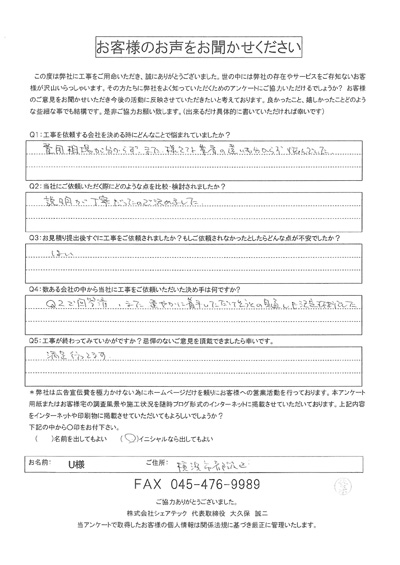 お客様のお声をお聞かせください
この度は弊社に工事をご用命いただき、誠にありがとうございました。世の中には弊社の存在やサービスをご存知ないお客
様が沢山いらっしゃいます。その方たちに弊社をよく知っていただくためのアンケートにご協力いただけるでしょうか? お客
様のご意見をお聞かせいただき今後の活動に反映させていただきたいと考えております。良かったこと、嬉しかったことどのよう
な些細な事でも結構です。是非ご協力お願い致します。(出来るだけ具体的に書いていただければ幸いです)
Q1:工事を依頼する会社を決める時にどんなことで悩まれていましたか?
費用相場が分からず、また様々な業者の違いも分からず悩んでいた
Q2:当社にご依頼いただく際にどのような点を比較・検討されましたか?
説明が丁寧だったので決めました
Q3:お見積り提出後すぐに工事をご依頼されましたか?もしご依頼されなかったとしたらどんな点が不安でしたか?
はい
Q4:数ある会社の中から当社に工事をご依頼いただいた決め手は何ですか?
Q2で回答済、また速やかに着手して
Q5:工事が終わってみていかがですか?忌憚のないご意見を頂戴できましたら幸いです。
満足行ってます
*弊社は広告宣伝費を極力かけない為にホームページだけを頼りにお客様への営業活動を行っております。本アンケート
用紙またはお客様宅の調査風景や施工状況を随時ブログ形式のインターネットに掲載させていただいております。上記内容
をインターネットや印刷物に掲載させていただいてもよろしいでしょうか?
下記の中から○印をお付下さい。
( )名前を出してもよい (○)イニシャルなら出してもよい
お名前: U様 ご住所: 横浜市都筑区
FAX 045-476-9989
ご協力ありがとうございました。
株式会社シェアテック 代表取締役 大久保 誠二
当アンケートで取得したお客様の個人情報は関係法規に基づき厳正に管理いたします。